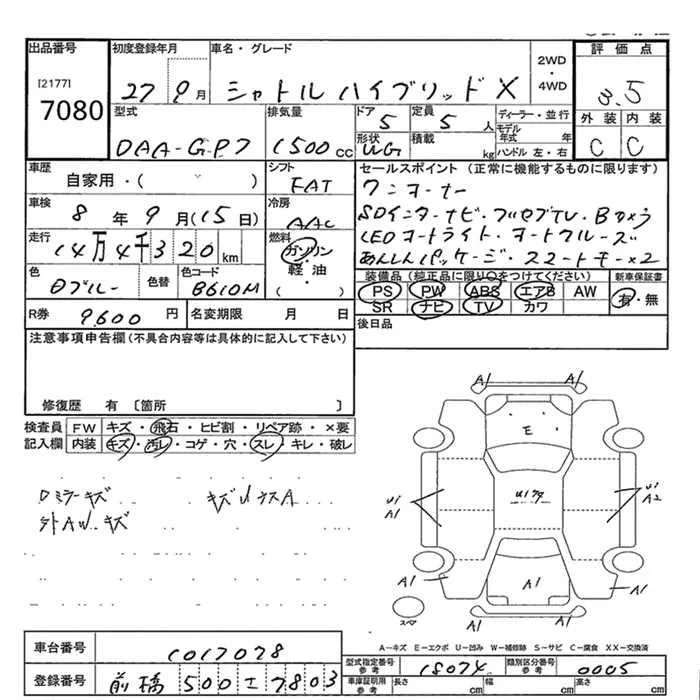 出品番号 初度登録年月 車名・グレード 2WD・4WD 評価点
[2177] 7080 27 9月 シャトルハイブリッドX 3.5
型式 排気量 ドア 定員 ディーラー・並行 外装 内装
DAA-GP7 1500cc 5 5人 モデル年式 年 C C
形状 積載
WG kg ハンドル 左・右
車歴 シフト セールスポイント (正常に機能するものに限ります)
自家用・( ) FAT ワンオーナー
車検 冷房 SDインターナビ・フルセグTV・Bカメラ
8年9月(15日) AAC LEDオートライト・オートクルーズ
走行 燃料 あんしんパッケージ・スマートキー×2
14万4千320km ガソリン・軽油・( )
色 色替 色コード 装備品(純正品に限り○をつけてください) 新車保証書
B610M PS PW ABS エアB AW 有・無
SR ナビ TV カワ
R券 9600円 名変期限 月 日 後日品
注意事項申告欄(不具合内容等は具体的に記入して下さい)
修復歴 有〔箇所 〕
検査員記入欄 FW キズ・飛石・ヒビ割・リペア跡・×要
内装 キズ・汚レ・コゲ・穴・スレ・キレ・破レ
A1 A1
E
U1 A1 U1 A2
A1 A1 A1
スペア
A-キズ E-エクボ U-凹み W-補修跡 S-サビ C-腐食 XX-交換済
車台番号 1017078
型式指定番号 参考 18074 類別区分番号 参考 0005
登録番号 前橋 500 7803
車庫証明用 参考 長さ cm 幅 cm 高さ cm